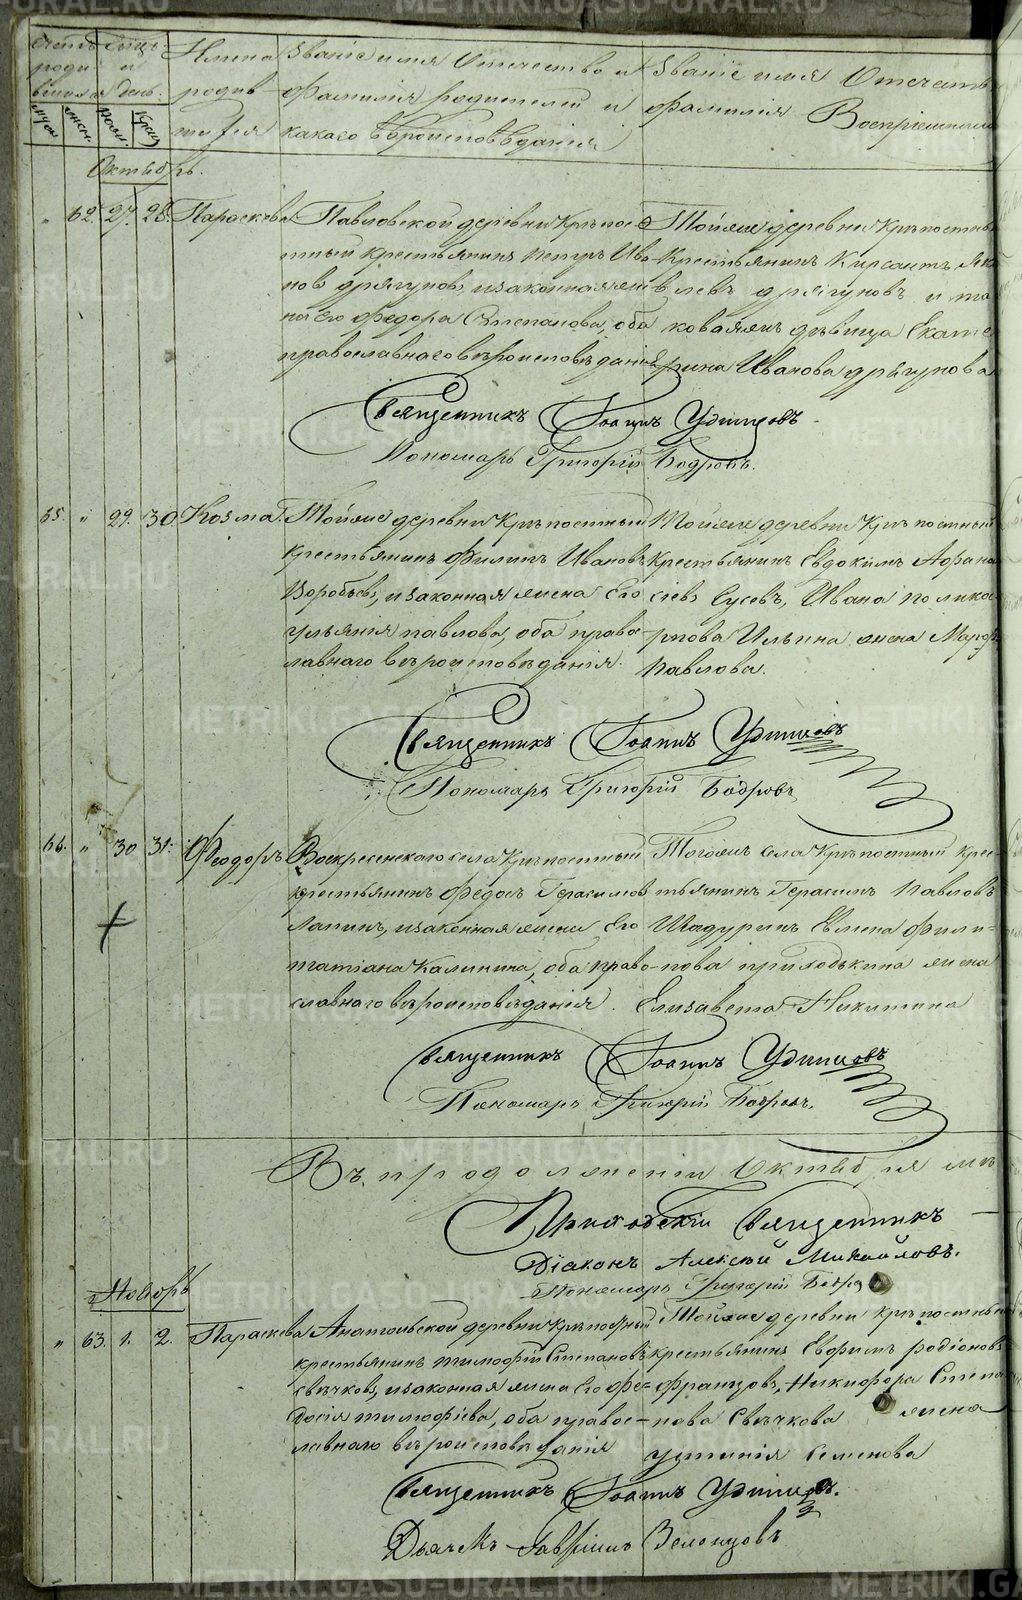 METRIKI.GASU-URAL.RU
Счетъ роди-вшихся
Мѣсяцъ и день.
Имена родив-шихся
Званіе имя Отчество и фамилія родителей и какаго вѣроисповѣданія
Званіе имя Отчеств
фамилія Воспріемник
муж. жен. рожд. крещ.
Октябрь.
" 62. 27. 28. Параскева
Павловской деревни Крѣпос-
тный крестьянинъ Петръ Ива-
новъ Дрягуновъ, и законная же-
на его Федора Степанова, оба
православнаго вѣроисповѣданія
Тойже деревни Крѣпостны
Крестьянинъ Кирсантъ Яко
влевъ Дрягуновъ и то
коваяжъ дѣвица Екате
рина Иванова Дрягунова
Священникъ Іоаннъ Удинцовъ
Пономарь Григорій Бодровъ.
65. " 29. 30. Козма.
Тойже деревни Крѣпостный
крестьянинъ Филипъ Ивановъ
Воробьевъ, и законная жена его
Ульянія Павлова, оба право-
лавнаго вѣроисповѣданія.
Тойже деревни Крѣпостный
Крестьянинъ Евдокимъ Афана
сіевъ Сусевъ, Ивана Поликар
пова Ильина жена Марф
Павлова.
Священникъ Іоаннъ Удинцовъ
Пономарь Григорій Бодровъ
66. " 30 31. Феодоръ
Воскресенскаго села Крѣпостный
крестьянинъ Федоръ Герасимов
Лапинъ, и законная жена Его
Татіана Калинина, оба право-
славнаго вѣроисповѣданія.
Тогожъ села Крѣпостный крес-
тьянинъ Герасимъ Павловъ
Шадуринъ Елена Фили-
пова приходькина жена
Елизавета Никитина
Священникъ Іоаннъ Удинцовъ
Пономарь Григорій Бодровъ.
Въ продолженіи Октября мѣ
Приходскій Священникъ
Діаконъ Алексій Михайловъ.
Пономарь Григорій Бодро
Ноябрь
" 63. 1. 2. Параскева
Анатольской деревни Крѣпосный
крестьянинъ Тимофѣй Степановъ
Свѣчковъ, и законная жена его Фе-
досія Тимофѣева, оба правос-
лавнаго вѣроисповѣданія
Тойже деревни крѣпостны
крестьянинъ Евфимъ Родіоновъ
Францовъ, Никифора Степа
нова Свѣчкова жена
Устинія Семенова
Священникъ Іоаннъ Удинцовъ.
Дьячекъ Гавріилъ Зеленцовъ